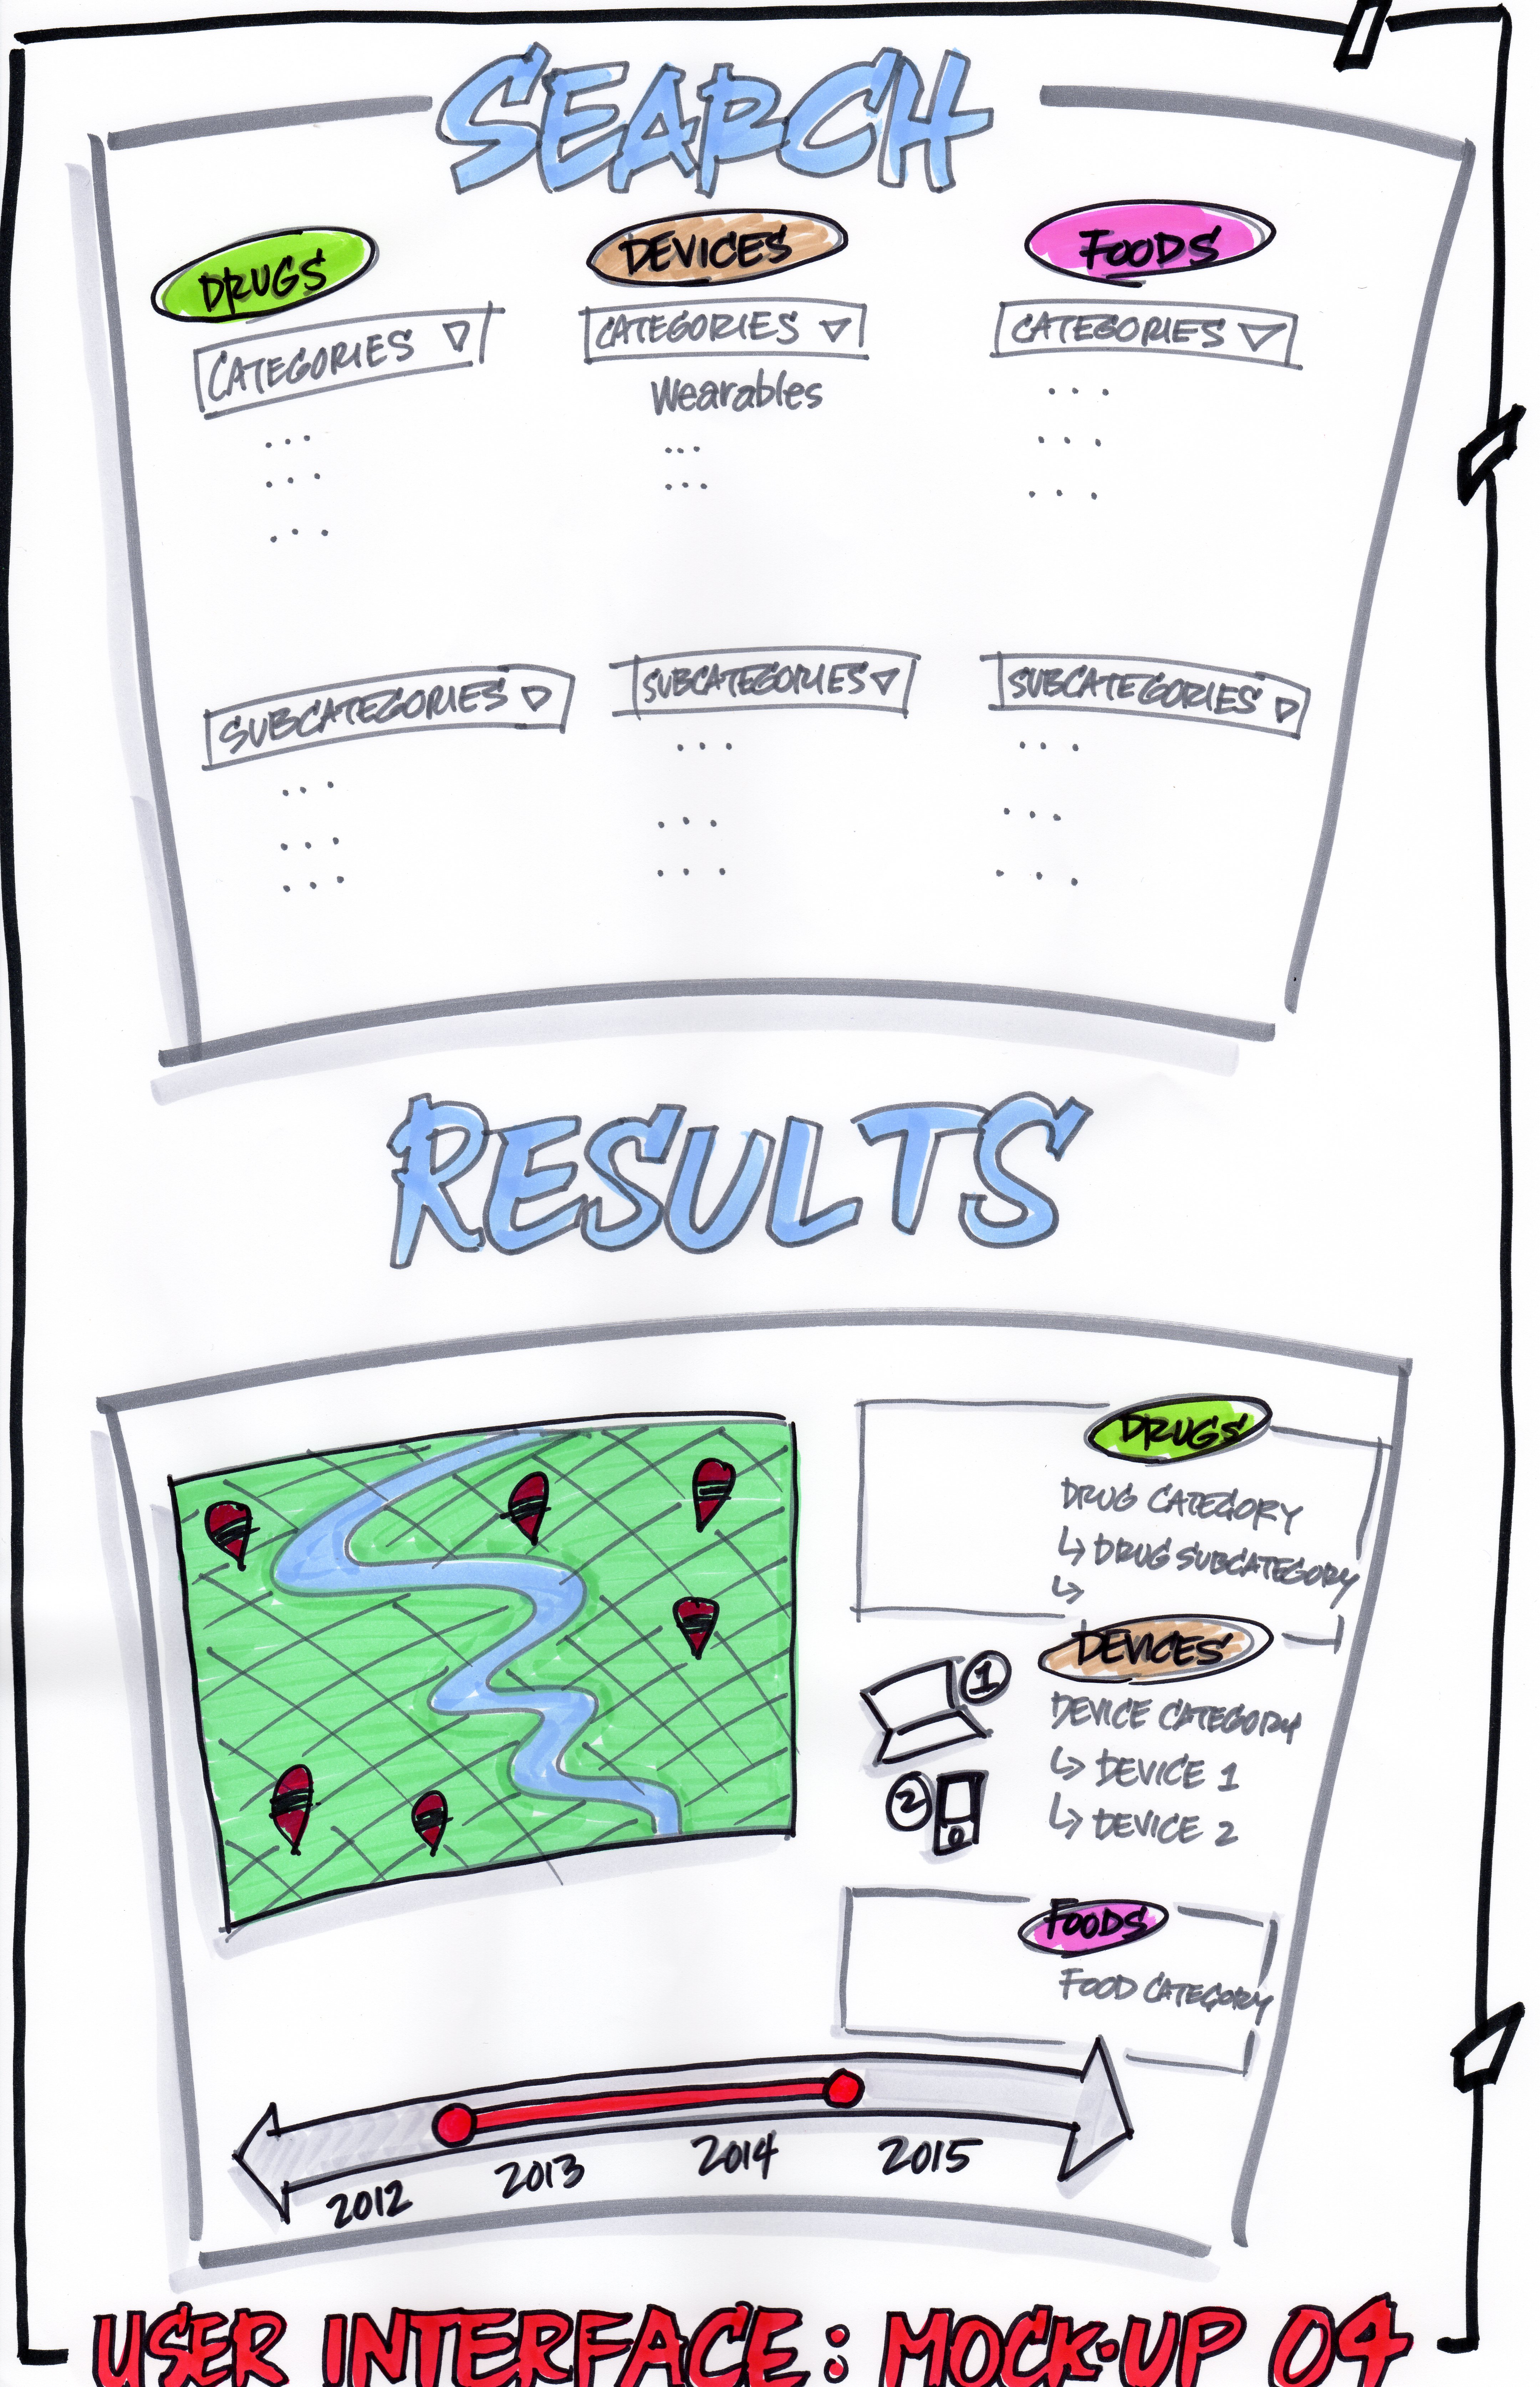 SEARCH
DRUGS
DEVICES
FOODS
CATEGORIES
CATEGORIES
CATEGORIES
...
Wearables
...
...
...
...
...
...
...
SUBCATEGORIES
SUBCATEGORIES
SUBCATEGORIES
...
...
...
...
...
...
...
...
...
RESULTS
DRUGS
DRUG CATEGORY
↳ DRUG SUBCATEGORY
↳
DEVICES
1
DEVICE CATEGORY
↳ DEVICE 1
2
↳ DEVICE 2
FOODS
FOOD CATEGORY
2012
2013
2014
2015
USER INTERFACE: MOCK-UP 04